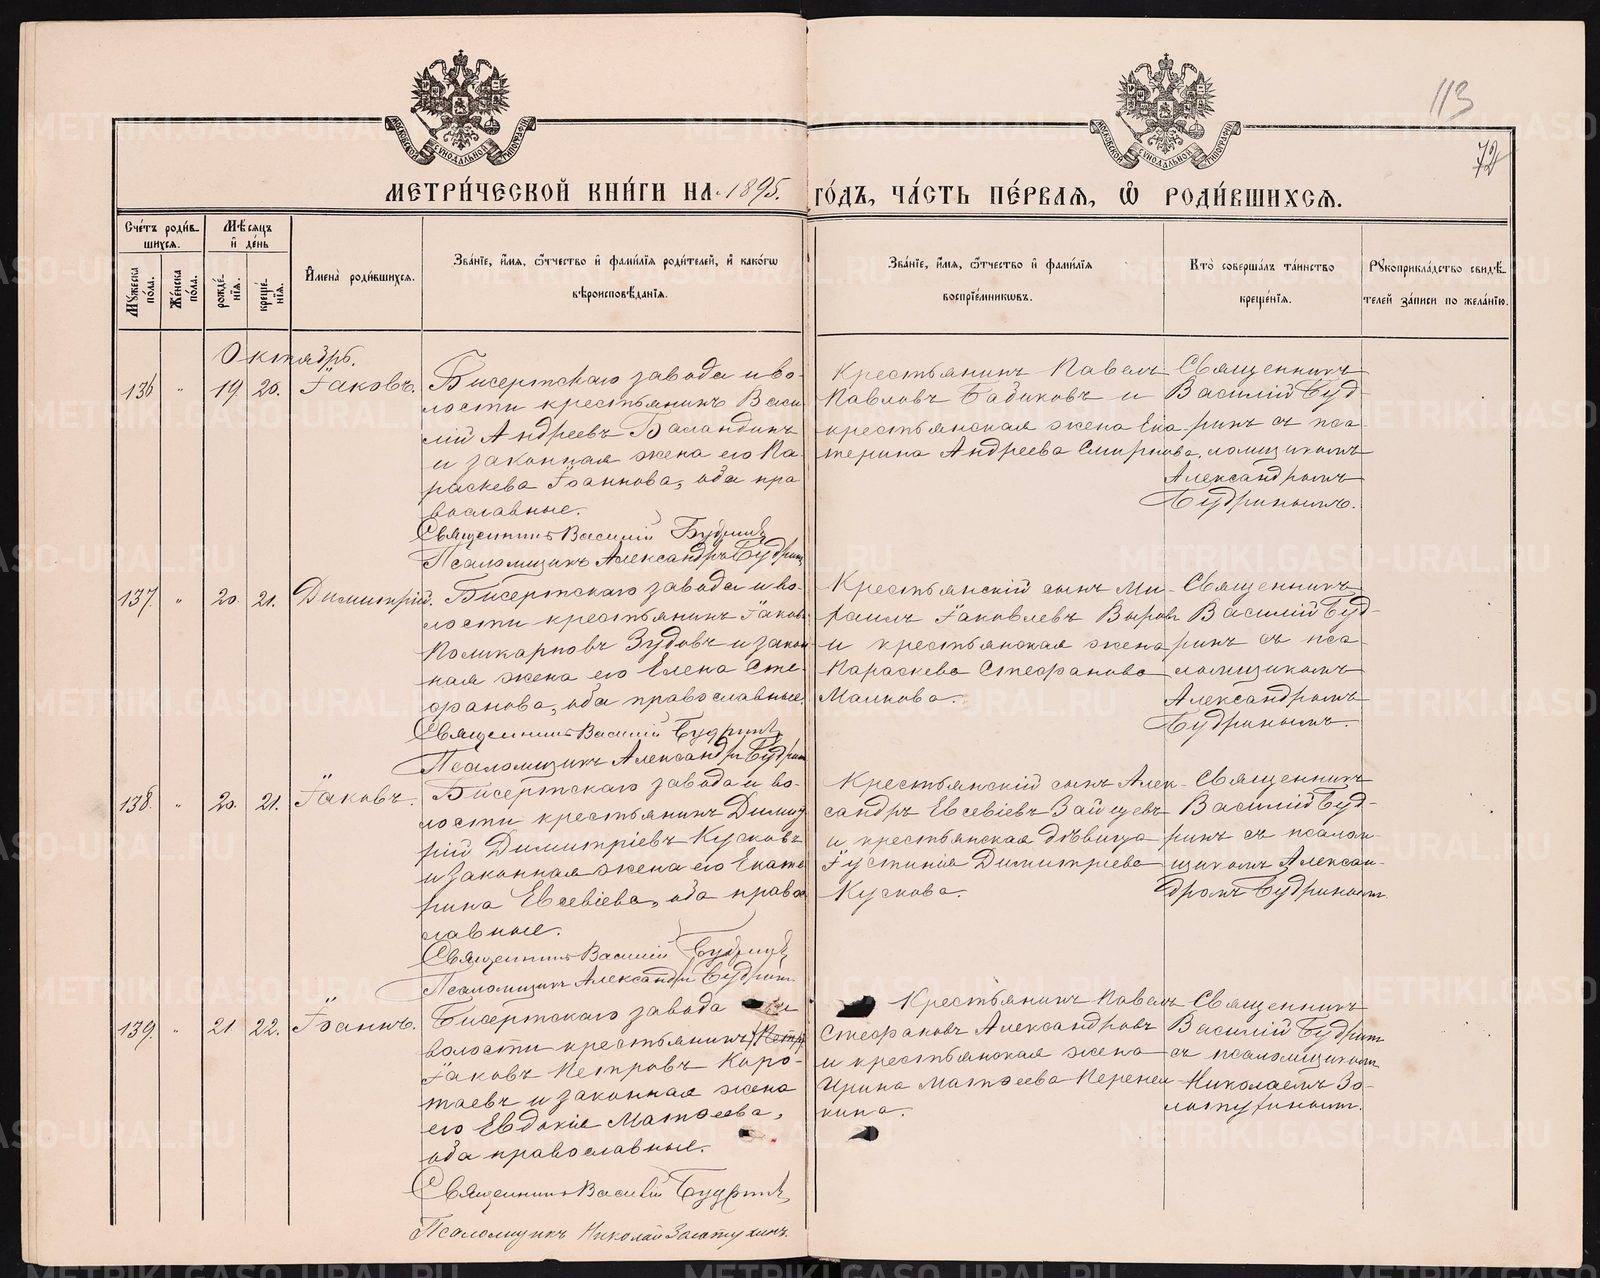 113
72
МОСКОВСКОЙ СѴНОДАЛЬНОЙ ТИПОГРАФІИ
МОСКОВСКОЙ СѴНОДАЛЬНОЙ ТИПОГРАФІИ
МЕТРИ́ЧЕСКОЙ КНИ́ГИ НА 1895. ГО́ДЪ, ЧА́СТЬ ПЕ́РВАЯ, Ѡ҆ РОДИ́ВШИХСЯ.
Сче́тъ роди́в-
шихся.
Мꙋ́жеска по́ла.
Же́нска по́ла.
Мѣ́сяцъ
и҆ де́нь
рожде́-
нїя.
креще́-
нїя.
И҆мена̀ роди́вшихся.
Зва́нїе, и҆́мя, ѻ҆́тчество и҆ фами́лїя роди́телей, и҆ како́гѡ
вѣроисповѣ́данїя.
Зва́нїе, и҆́мя, ѻ҆́тчество и҆ фами́лїя
воспрїе́мникѡвъ.
Кто̀ соверша́лъ та́инство
креще́нїя.
Рꙋкоприкла́дство свидѣ́-
телей за́писи по жела́нїю.
Октябрь.
136 " 19 20. Іаковъ.
Бисертскаго завода и во-
лости крестьянинъ Васи
лій Андреевъ Баландинъ
и законная жена его Па-
раскева Іоаннова, оба пра
вославные.
Священникъ Василій Будринъ
Псаломщикъ Александръ Будринъ
Крестьянинъ Павелъ
Павловъ Бабиковъ и
крестьянская жена Ека
терина Андреева Смирнова.
Священникъ
Василій Буд-
ринъ съ пса-
ломщикомъ
Александромъ
Будринымъ.
137. " 20. 21. Димитрій.
Бисертскаго завода и во-
лости крестьянинъ Іаковъ
Поликарповъ Зудовъ и закон
ная жена его Елена Сте-
фанова, оба православные.
Священникъ Василій Будринъ
Псаломщикъ Александръ Будринъ
Крестьянскій сынъ Ми-
хаилъ Іаковлевъ
и крестьянская жена
Параскева Стефанова
Малкова.
Священникъ
Василій Буд-
ринъ съ пса-
ломщикомъ
Александромъ
Будринымъ.
138. " 20. 21. Іаковъ.
Бисертскаго завода и во-
лости крестьянинъ Димит
рій Димитріевъ Кусковъ
и законная жена его Екате
рина Евсевіева, оба право
славные.
Священникъ Василій Будринъ
Псаломщикъ Александръ Будринъ
Крестьянскій сынъ Алек-
сандръ Евсевіевъ Зайцевъ
и крестьянская дѣвица
Іустинія Димитріева
Кускова.
Священникъ
Василій Буд-
ринъ съ псалом
щикомъ Алексан-
дромъ Будринымъ.
139. " 21 22. Іоаннъ.
Бисертскаго завода и
волости крестьянинъ
Іаковъ Петровъ Коро-
таевъ и законная жена
его Евдокія Матѳеева,
оба православные.
Священникъ Василій Будринъ
Псаломщикъ Николай Золотухинъ.
Крестьянинъ Павелъ
Стефановъ Александровъ
и крестьянская жена
Ирина Матѳеева Перепел
кина.
Священникъ
Василій Будринъ
съ псаломщикомъ
Николаемъ Зо-
лотухинымъ.
METRIKI.GASO-URAL.RU